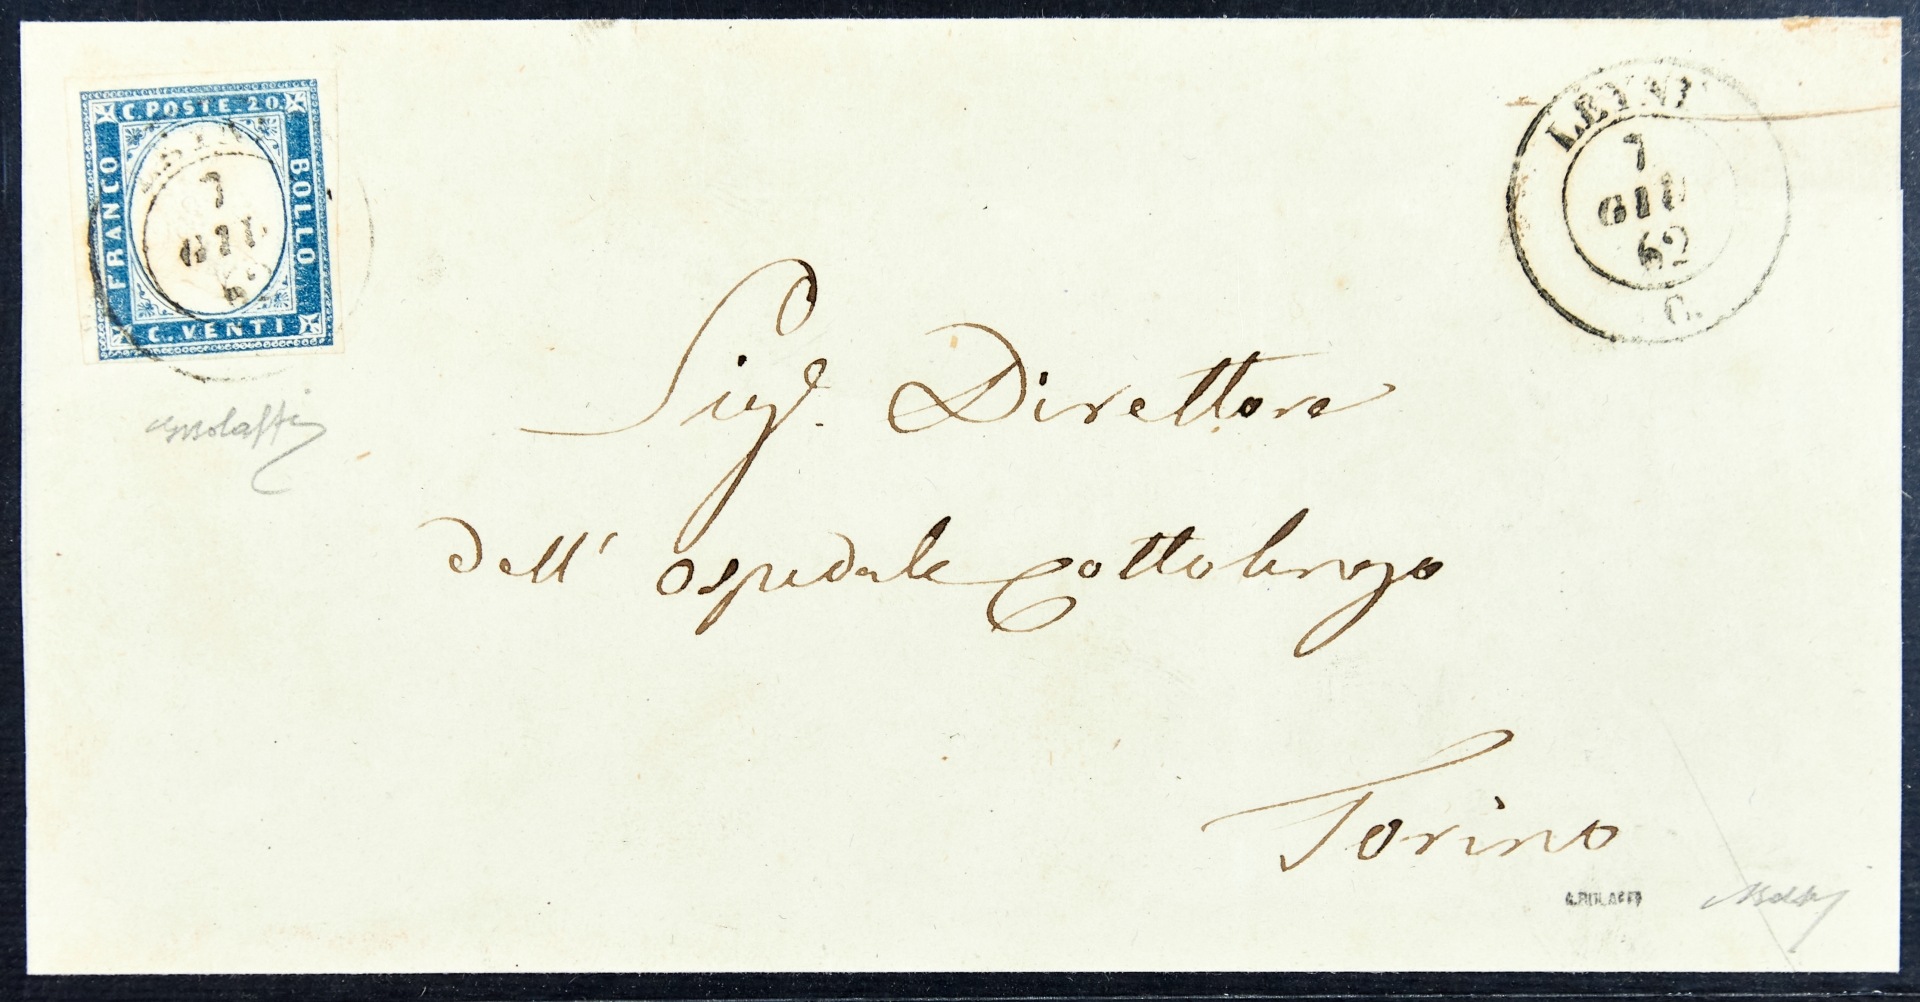 C. POSTE. 20.
FRANCO
BOLLO
C. VENTI
7
GIU
62
LEYNI
7
GIU
62
C.
Sigr. Direttore
dell' Ospedale Cottolengo
Torino
A. BOLAFFI